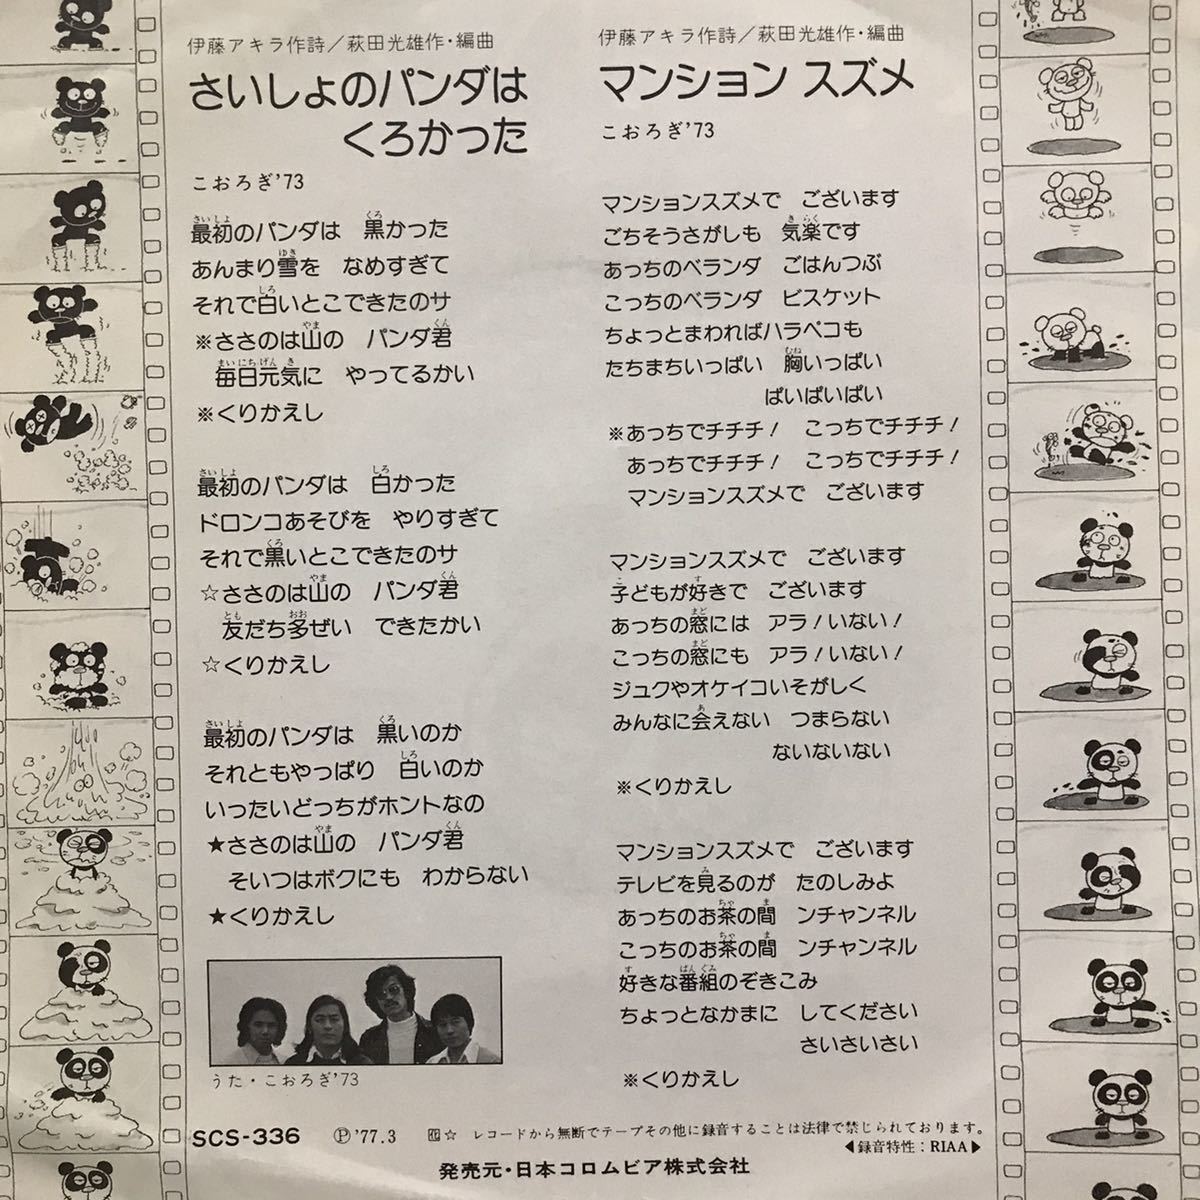 伊藤アキラ作詩／萩田光雄作・編曲
さいしょのパンダは
くろかった
こおろぎ'73
最初のパンダは　黒かった
あんまり雪を　なめすぎて
それで白いとこできたのサ
※ささのは山の　パンダ君
毎日元気に　やってるかい
※くりかえし
最初のパンダは　白かった
ドロンコあそびを　やりすぎて
それで黒いとこできたのサ
☆ささのは山の　パンダ君
友だち多ぜい　できたかい
☆くりかえし
最初のパンダは　黒いのか
それともやっぱり　白いのか
いったいどっちがホントなの
★ささのは山の　パンダ君
そいつはボクにも　わからない
★くりかえし
うた・こおろぎ'73
伊藤アキラ作詩／萩田光雄作・編曲
マンション スズメ
こおろぎ'73
マンションスズメで　ございます
ごちそうさがしも　気楽です
あっちのベランダ　ごはんつぶ
こっちのベランダ　ビスケット
ちょっとまわればハラペコも
たちまちいっぱい　胸いっぱい
ぱいぱいぱい
※あっちでチチチ！　こっちでチチチ！
あっちでチチチ！　こっちでチチチ！
マンションスズメで　ございます
マンションスズメで　ございます
子どもが好きで　ございます
あっちの窓には　アラ！いない！
こっちの窓にも　アラ！いない！
ジュクやオケイコいそがしく
みんなに会えない　つまらない
ないないない
※くりかえし
マンションスズメで　ございます
テレビを見るのが　たのしみよ
あっちのお茶の間　ンチャンネル
こっちのお茶の間　ンチャンネル
好きな番組のぞきこみ
ちょっとなかまに　してください
さいさいさい
※くりかえし
SCS-336　Ⓟ'77.3　☆　レコードから無断でテープその他に録音することは法律で禁じられております。
◀録音特性：RIAA▶
発売元・日本コロムビア株式会社